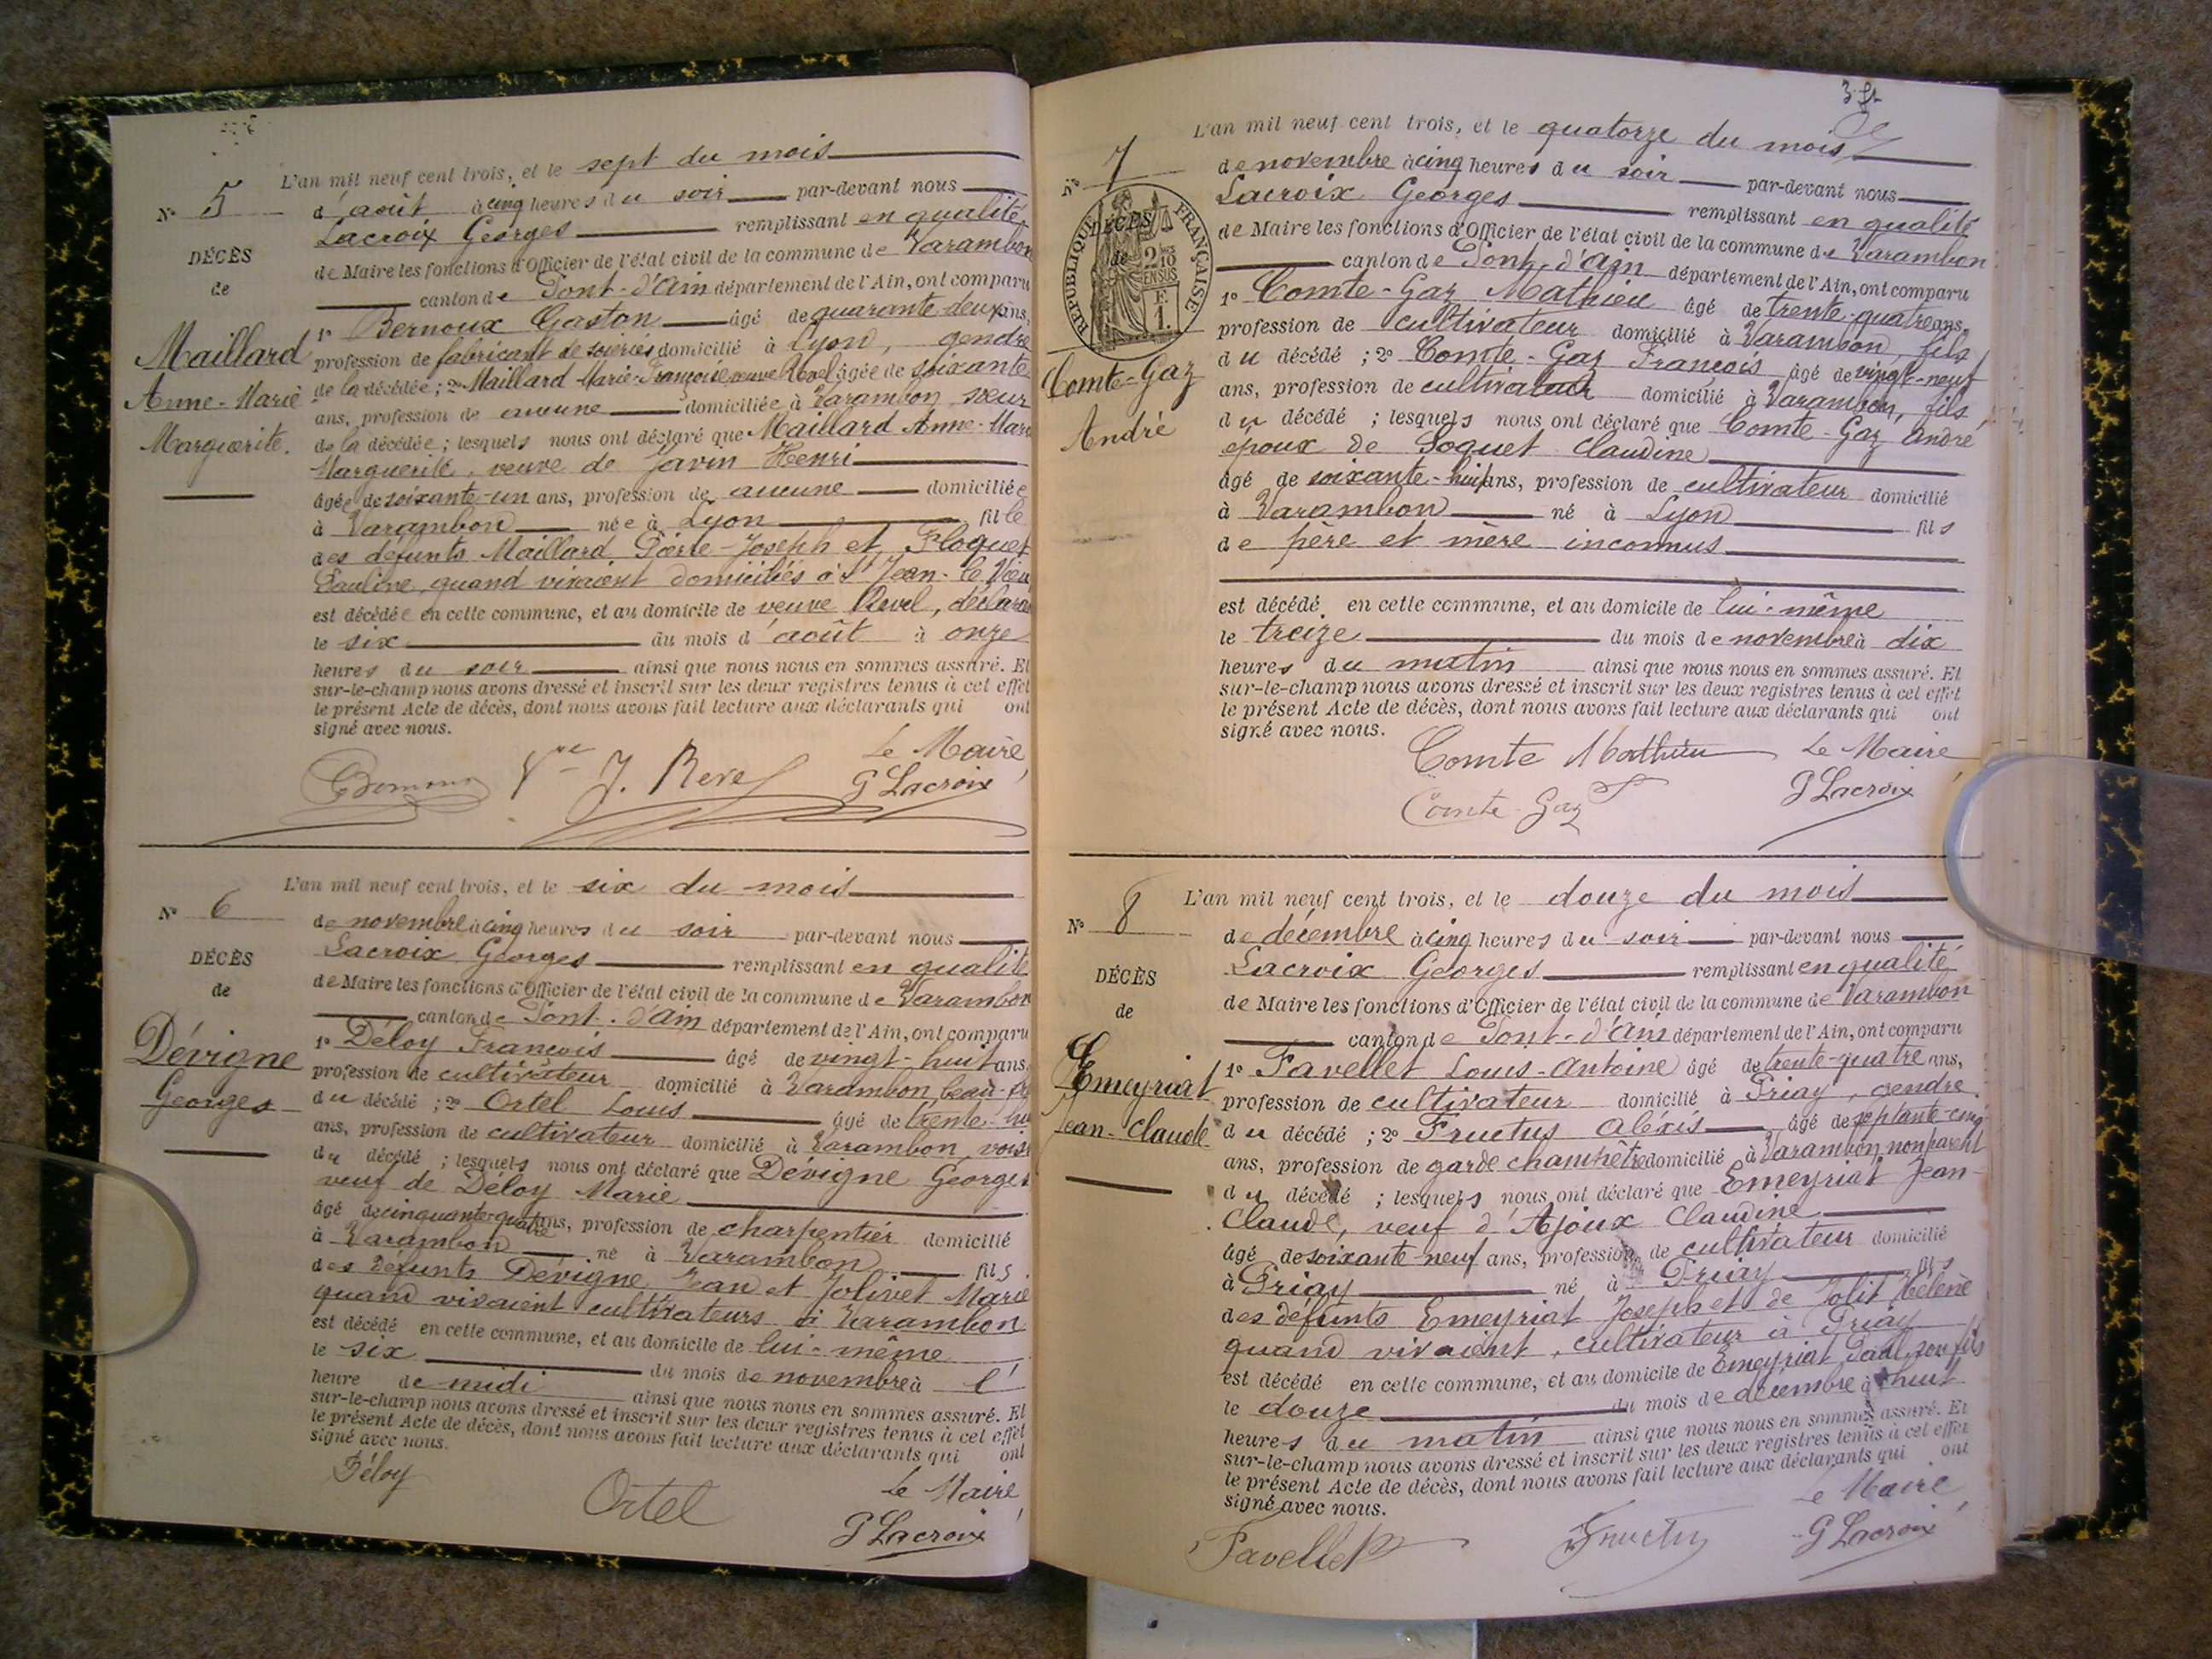 L'an mil neuf cent trois, et le sept du mois
N° 5
d'août à cinq heures du soir par-devant nous
Lacroix Georges remplissant en qualité
DÉCÈS
de Maire les fonctions d'Officier de l'état civil de la commune de Varambon
de
canton de Pont-d'Ain département de l'Ain, ont comparu
1° Bernoux Gaston âgé de quarante deux ans,
Maillard
profession de fabricant de soieries domicilié à Lyon, gendre
Anne-Marie
de la décédée ; 2° Maillard Marie-Françoise veuve Revel âgée de soixante
ans, profession de aucune domiciliée à Varambon sœur
Marguerite.
de la décédée ; lesquels nous ont déclaré que Maillard Anne-Marie
Marguerite, veuve de Javin Henri
âgée de soixante-un ans, profession de aucune domiciliée
à Varambon née à Lyon fille
des défunts Maillard Pierre-Joseph et Floquet
Pauline, quand vivaient domiciliés à St Jean-le-Vieux
est décédée en cette commune, et au domicile de veuve Revel, déclara
le six du mois d'août à onze
heures du soir ainsi que nous nous en sommes assuré. Et
sur-le-champ nous avons dressé et inscrit sur les deux registres tenus à cet effet
le présent Acte de décès, dont nous avons fait lecture aux déclarants qui ont
signé avec nous.
Le Maire
Vve J. Revel
G Lacroix
L'an mil neuf cent trois, et le six du mois
N° 6
de novembre à cinq heures du soir par-devant nous
Lacroix Georges remplissant en qualité
DÉCÈS
de Maire les fonctions d'Officier de l'état civil de la commune de Varambon
de
canton de Pont-d'Ain département de l'Ain, ont comparu
1° Déloy François âgé de vingt-huit ans
Dévigne
profession de cultivateur domicilié à Varambon, beau-
Georges
du décédé ; 2° Ortel Louis âgé de trente-hui
ans, profession de cultivateur domicilié à Varambon, voisi
du décédé ; lesquels nous ont déclaré que Dévigne Georges
veuf de Déloy Marie
âgé de cinquante-quatre ans, profession de charpentier domicilié
à Varambon né à Varambon fils
des défunts Dévigne Jean et Jolivet Marie
quand vivaient cultivateurs à Varambon
est décédé en cette commune, et au domicile de lui-même
le six du mois de novembre à l'
heure de midi ainsi que nous nous en sommes assuré. Et
sur-le-champ nous avons dressé et inscrit sur les deux registres tenus à cet effet
le présent Acte de décès, dont nous avons fait lecture aux déclarants qui ont
signé avec nous.
Déloy
Ortel
Le Maire
G Lacroix
L'an mil neuf cent trois, et le quatorze du mois
N° 7
de novembre à cinq heures du soir par-devant nous
Lacroix Georges remplissant en qualité
DÉCÈS
de
RÉPUBLIQUE FRANÇAISE
2/10 EN SUS
F. 1.
de Maire les fonctions d'Officier de l'état civil de la commune de Varambon
canton de Pont-d'Ain département de l'Ain, ont comparu
1° Comte-Gaz Mathieu âgé de trente-quatre ans,
profession de cultivateur domicilié à Varambon, fils
Comte-Gaz
du décédé ; 2° Comte-Gaz François âgé de vingt-neuf
ans, profession de cultivateur domicilié à Varambon, fils
André
du décédé ; lesquels nous ont déclaré que Comte-Gaz André
époux de Soquet Claudine
âgé de soixante-huit ans, profession de cultivateur domicilié
à Varambon né à Lyon fils
de père et mère inconnus
est décédé en cette commune, et au domicile de lui-même
le treize du mois de novembre à dix
heures du matin ainsi que nous nous en sommes assuré. Et
sur-le-champ nous avons dressé et inscrit sur les deux registres tenus à cet effet
le présent Acte de décès, dont nous avons fait lecture aux déclarants qui ont
signé avec nous.
Comte Mathieu Le Maire
Comte-Gaz G Lacroix
L'an mil neuf cent trois, et le douze du mois
N° 8
de décembre à cinq heures du soir par-devant nous
Lacroix Georges remplissant en qualité
DÉCÈS
de Maire les fonctions d'Officier de l'état civil de la commune de Varambon
de
canton de Pont-d'Ain département de l'Ain, ont comparu
1° Favellet Louis-Antoine âgé de trente-quatre ans,
Emeyriat
profession de cultivateur domicilié à Priay, gendre
Jean-Claude
du décédé ; 2° Fructus Aléxis âgé de septante-cinq
ans, profession de garde champêtre domicilié à Varambon, non parent
du décédé ; lesquels nous ont déclaré que Emeyriat Jean-
Claude, veuf d'Ajoux Claudine
âgé de soixante-neuf ans, profession de cultivateur domicilié
à Priay né à Priay fils
des défunts Emeyriat Joseph et de Jolit Hélène
quand vivaient, cultivateur à Priay
est décédé en cette commune, et au domicile de Emeyriat Paul, son fils
le douze du mois de décembre à huit
heures du matin ainsi que nous nous en sommes assuré. Et
sur-le-champ nous avons dressé et inscrit sur les deux registres tenus à cet effet
le présent Acte de décès, dont nous avons fait lecture aux déclarants qui ont
signé avec nous.
Le Maire
Favellet
Fructus
G Lacroix